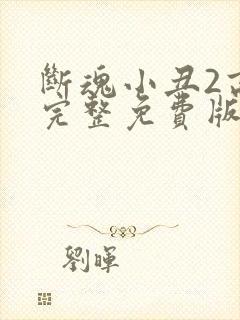 斷魂小丑2
完整免費版
劉暉